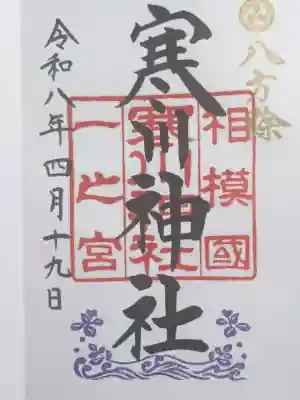 八方除
相模國
寒川神社
一之宮
寒川神社
令和八年四月十九日